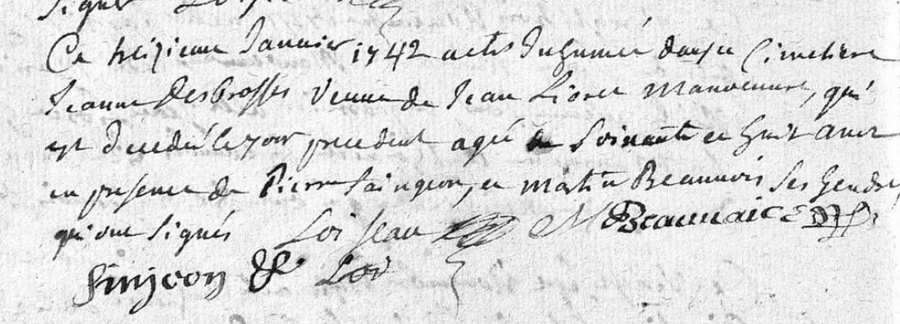 signer
Ce treizieme Janvier 1742 a etté Inhumée dans ce Cimetiere
Jeanne Desbrosses Veuve de Jean Lioret manoeuvre, qui
est Decedeé le jour precedent ageé de Soixante et huit ans
en presence de Pierre Saingeon, et Martin Beauvois ses Gendres
qui ont Signés Loiseau M Beauvais
Sinjeon